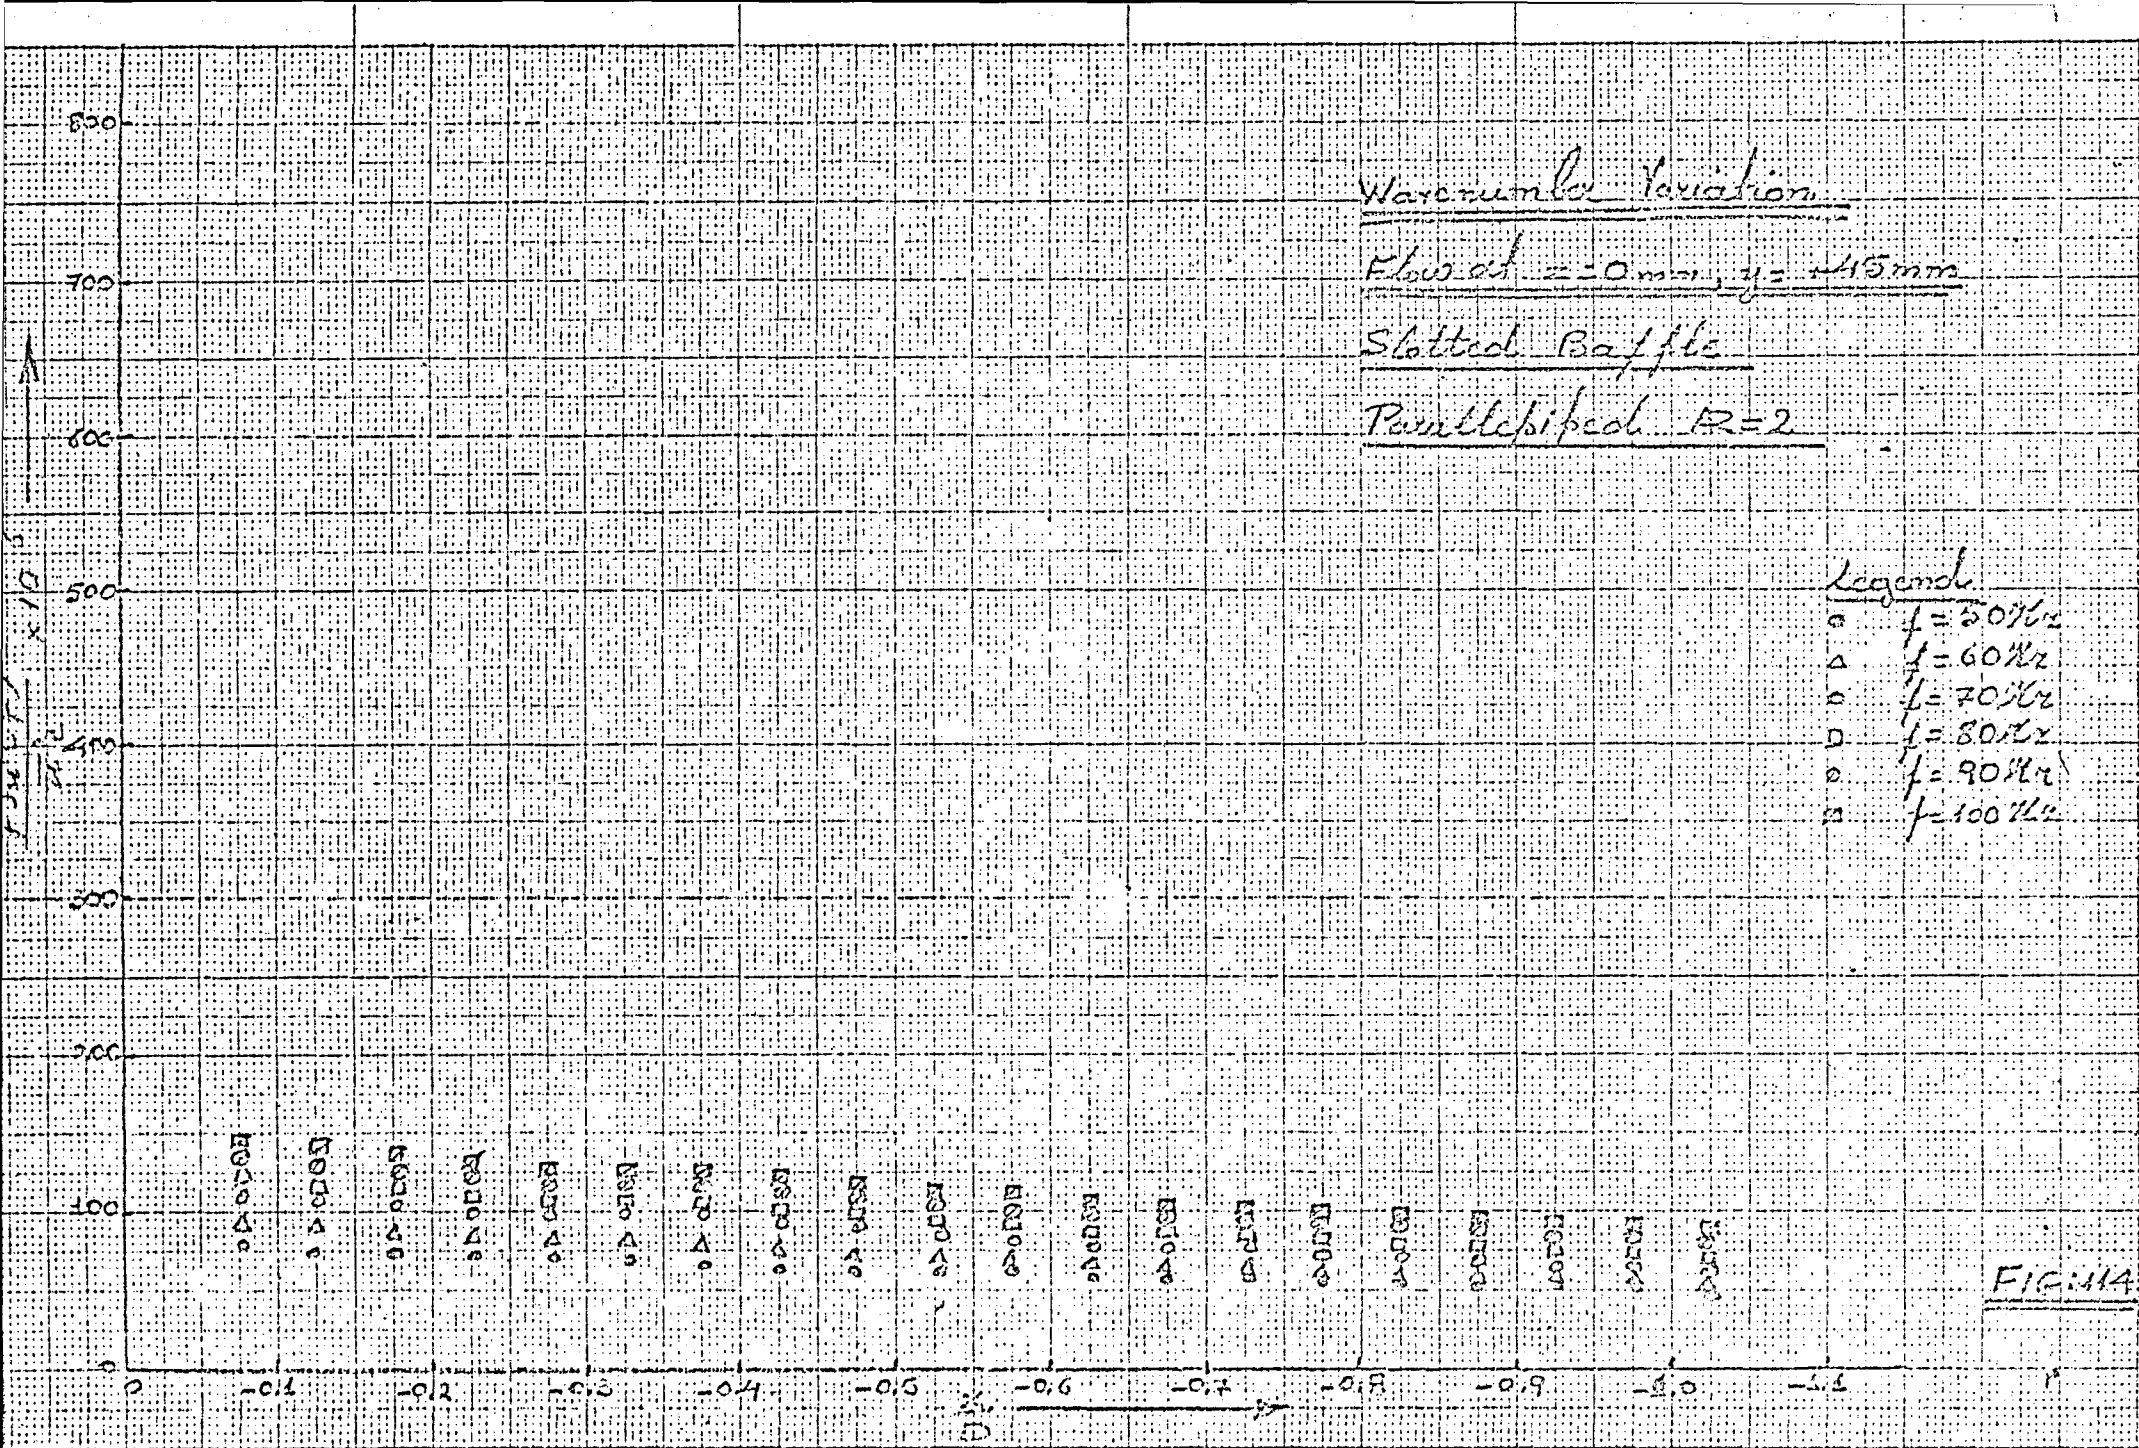 Wavenumber Variation
Flow at z=0mm, y=+45mm
Slotted Baffle
Parallepiped R=2
Legend
f=50Hz
f=60Hz
f=70Hz
f=80Hz
f=90Hz
f=100Hz
800
700
600
500
400
300
200
100
0
x 10 5
0 -0.1 -0.2 -0.3 -0.4 -0.5 -0.6 -0.7 -0.8 -0.9 -1.0 -1.1
FIG:114